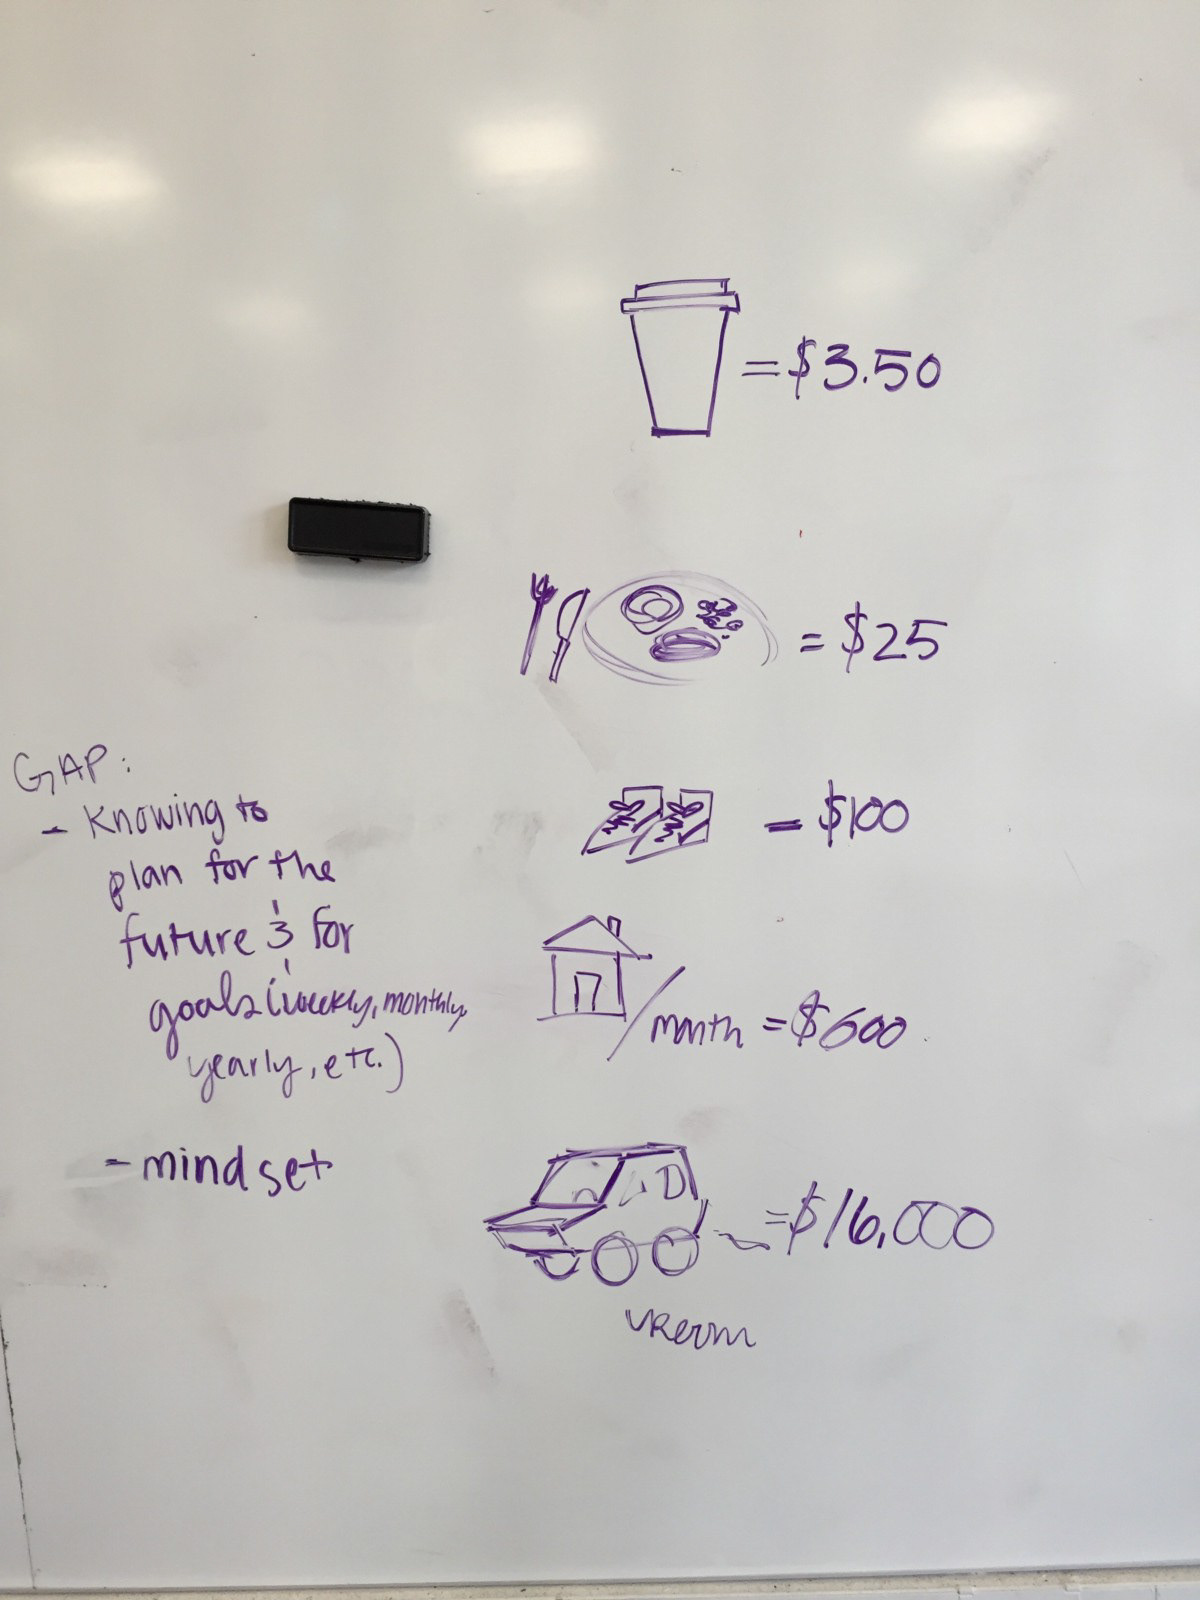 = $3.50
= $25
= $100
/month = $600
= $16,000
vroom
GAP:
- Knowing to
plan for the
future & for
goals (weekly, monthly,
yearly, etc.)
- mindset